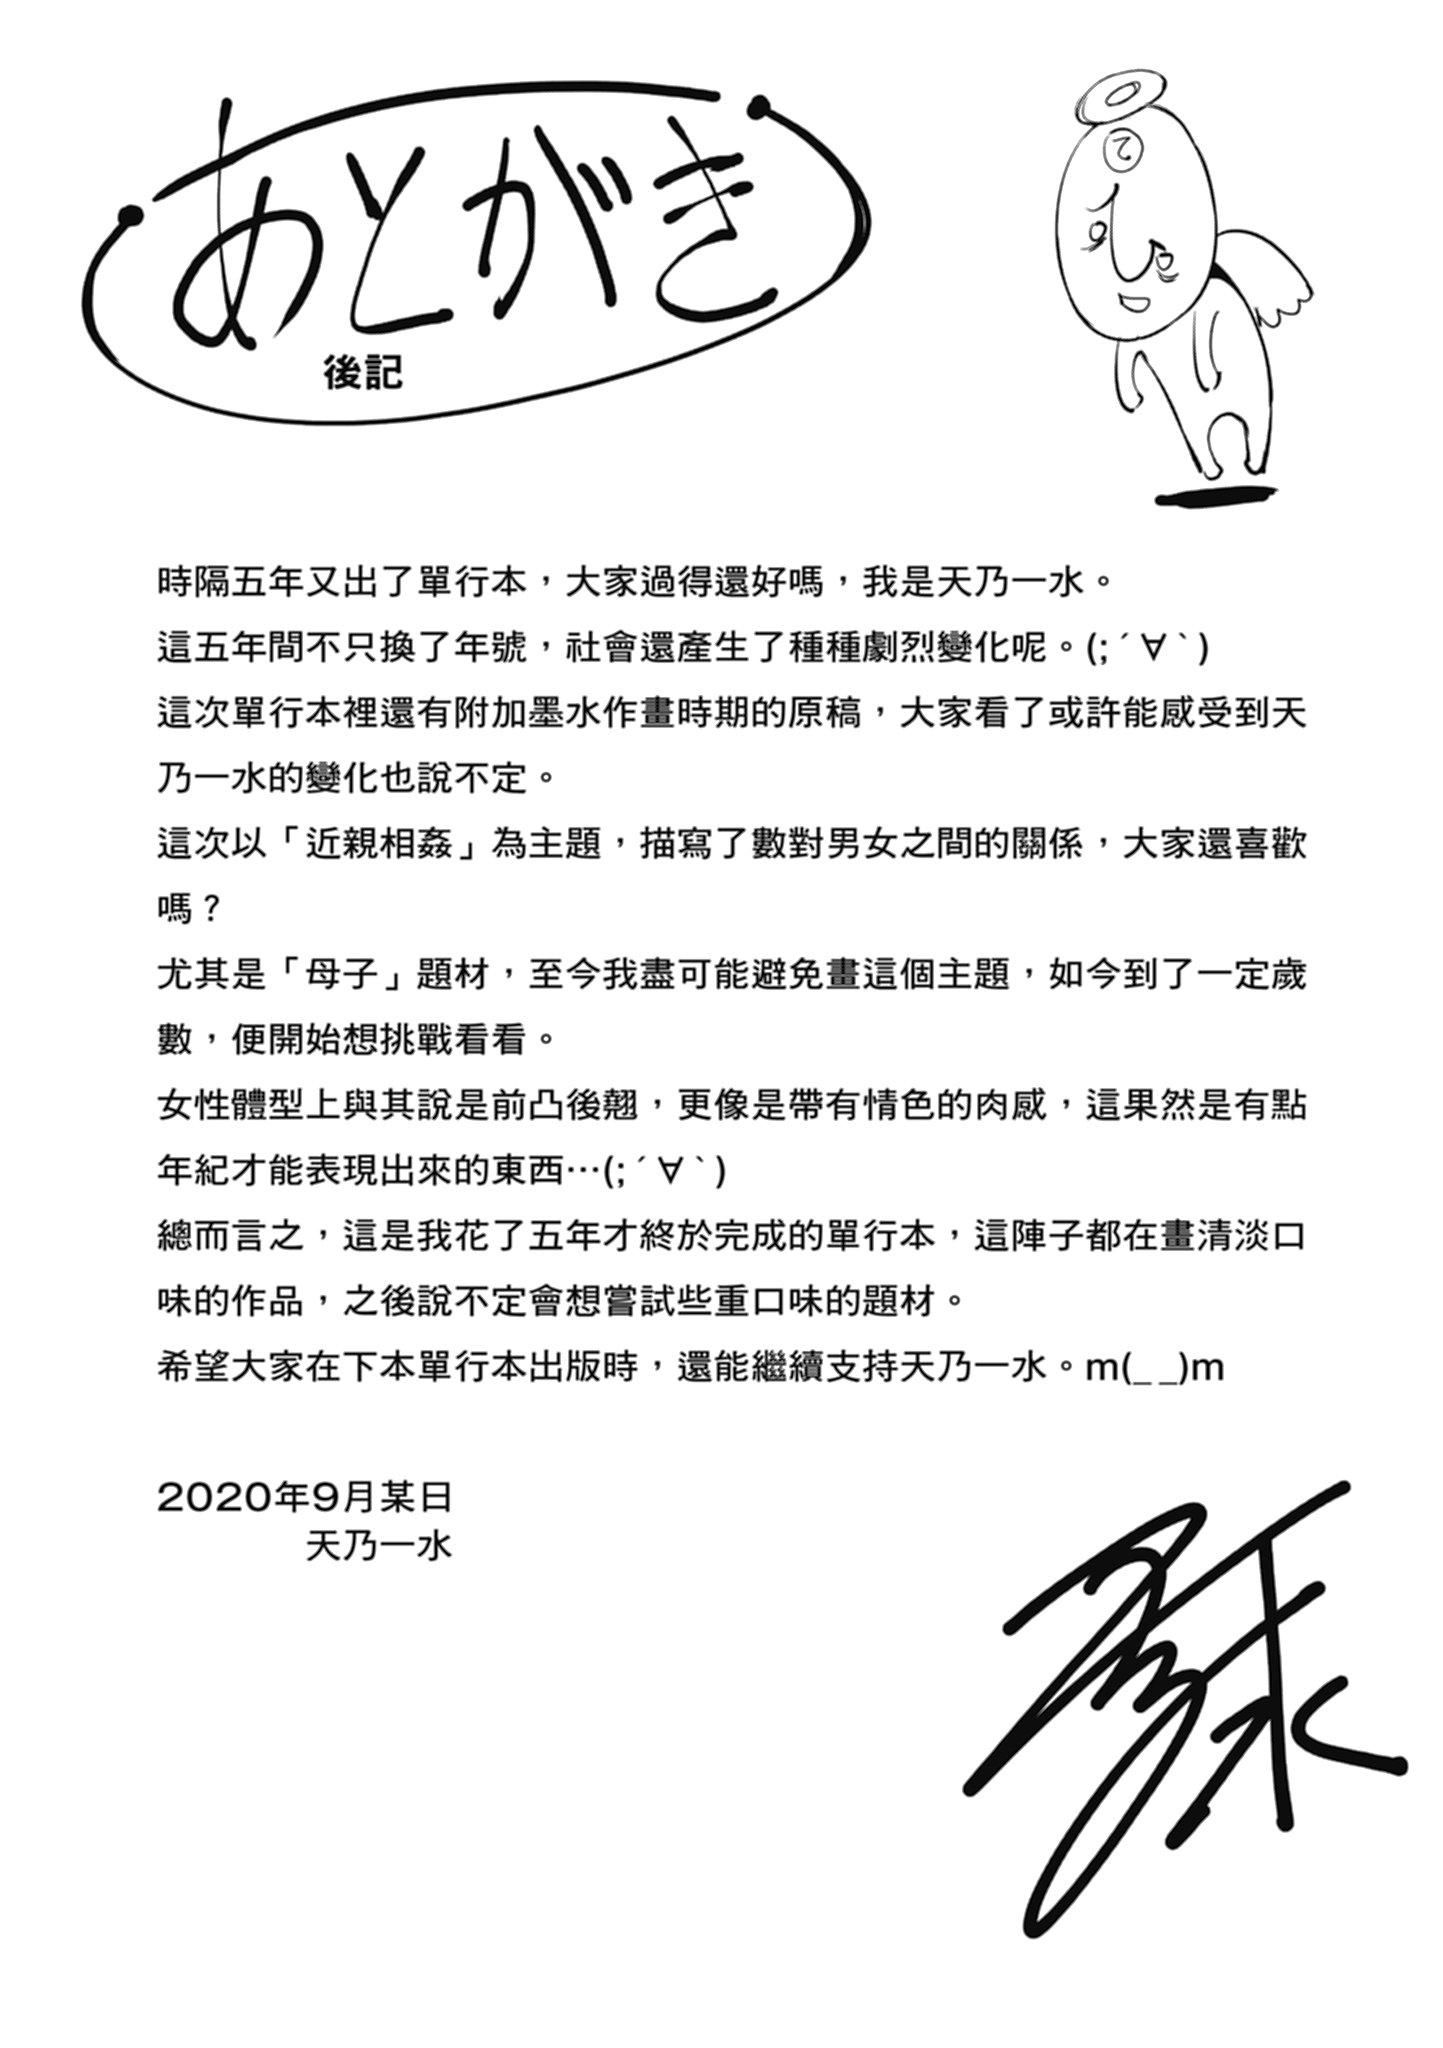 あとがき
後記
て
時隔五年又出了單行本，大家過得還好嗎，我是天乃一水。
這五年間不只換了年號，社會還產生了種種劇烈變化呢。(;´∀`)
這次單行本裡還有附加墨水作畫時期的原稿，大家看了或許能感受到天
乃一水的變化也說不定。
這次以「近親相姦」為主題，描寫了數對男女之間的關係，大家還喜歡
嗎？
尤其是「母子」題材，至今我盡可能避免畫這個主題，如今到了一定歲
數，便開始想挑戰看看。
女性體型上與其說是前凸後翹，更像是帶有情色的肉感，這果然是有點
年紀才能表現出來的東西…(;´∀`)
總而言之，這是我花了五年才終於完成的單行本，這陣子都在畫清淡口
味的作品，之後說不定會想嘗試些重口味的題材。
希望大家在下本單行本出版時，還能繼續支持天乃一水。m(_ _)m
2020年9月某日
天乃一水